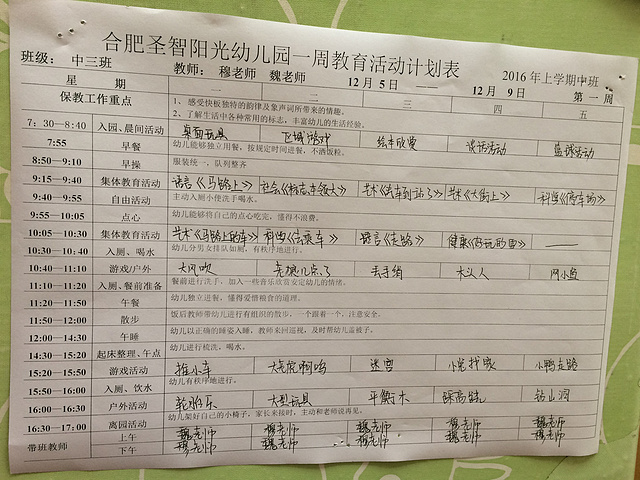 合肥圣智阳光幼儿园一周教育活动计划表
班级： 中三班 教师： 穆老师 魏老师 12月5日 —— 12月9日 2016年上学期中班
第一周
星 期 一 二 三 四 五
保教工作重点 1、感受快板独特的韵律及象声词所带来的情趣。
2、了解生活中各种常用的标志，丰富幼儿的生活经验。
7：30—8:40 入园、晨间活动 桌面玩具 区域游戏 绘本欣赏 谈话活动 篮球活动
7:55 早餐 幼儿能够独立用餐，按规定时间进餐，不洒饭粒。
8:50—9:10 早操 服装统一，队列整齐
9:15—9:40 集体教育活动 语言《马路上》 社会《标志本领大》 艺术《汽车到站了》 艺术《大街上》 科学《停车场》
9:40—9:55 自由活动 主动入厕小便洗手喝水。
9:55—10:05 点心 幼儿能够将自己的点心吃完，懂得不浪费。
10:05—10:30 集体教育活动 艺术《马路上的车》 科学《去乘车》 语言《走路》 健康《好玩的 》 ——
10:30—10:40 入厕、喝水 幼儿分男女排队如厕，有秩序地进行。
10:40—11:10 游戏/户外 大风吹 老狼几点了 丢手绢 木头人 网小鱼
11:10—11:20 入厕、餐前准备 餐前进行洗手，加入一些音乐欣赏安定幼儿的情绪。
11:20—11:50 午餐 幼儿独立进餐，懂得爱惜粮食的道理。
11:50—12:00 散步 饭后教师带幼儿进行有组织的散步，一个跟着一个，注意安全。
12:00—14:30 午睡 幼儿以正确的睡姿入睡，教师来回巡视，及时帮幼儿盖被子。
14:30—15:20 起床整理、午点 幼儿进行梳洗，喝水。
15:20—15:50 游戏活动 推小车 大老虎啊呜 迷宫 小兔找家 小鸭走路
15:50—16:00 入厕、饮水 幼儿有秩序地进行。
16:00—16:30 户外活动 轮胎乐 大型玩具 平衡木 踩高跷 钻山洞
16:30—17:00 离园活动 幼儿架好自己的小椅子，家长来接时，主动和老师说再见。
带班教师 上午 魏老师 穆老师 魏老师 穆老师 魏老师
下午 穆老师 魏老师 穆老师 魏老师 穆老师